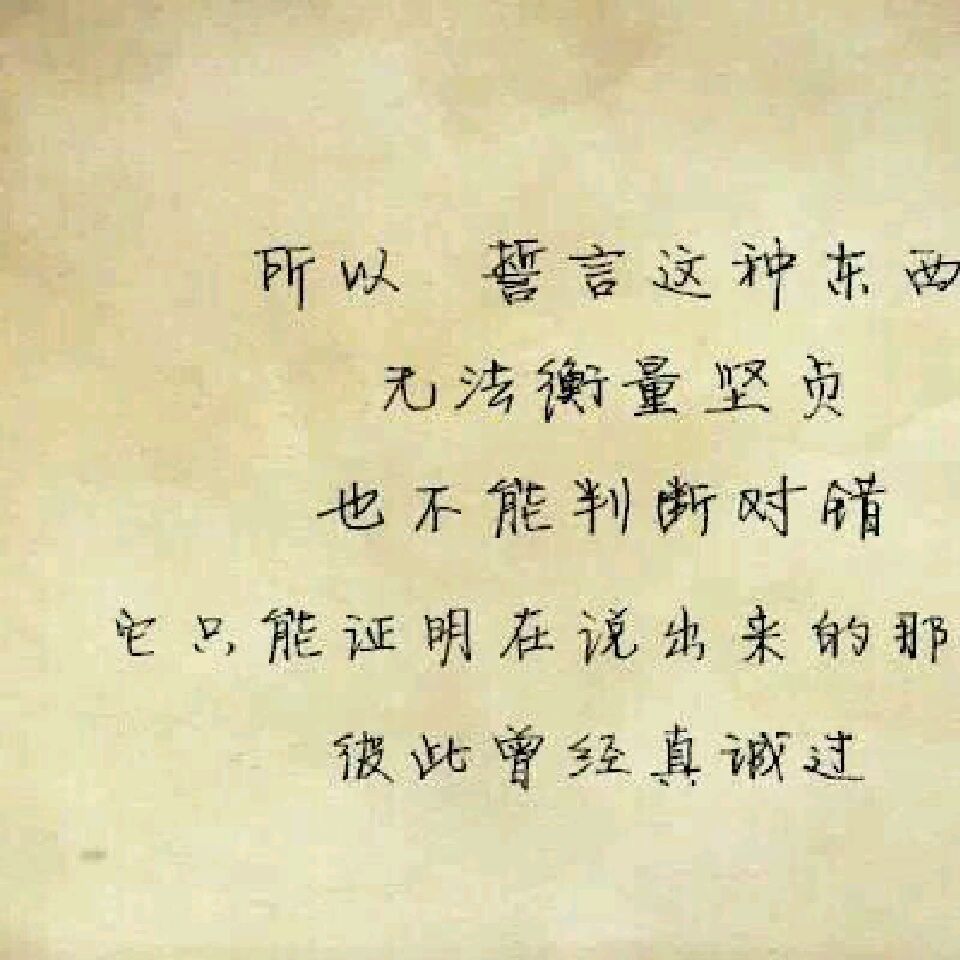 所以 誓言这种东西
无法衡量坚贞
也不能判断对错
它只能证明在说出来的那
彼此曾经真诚过